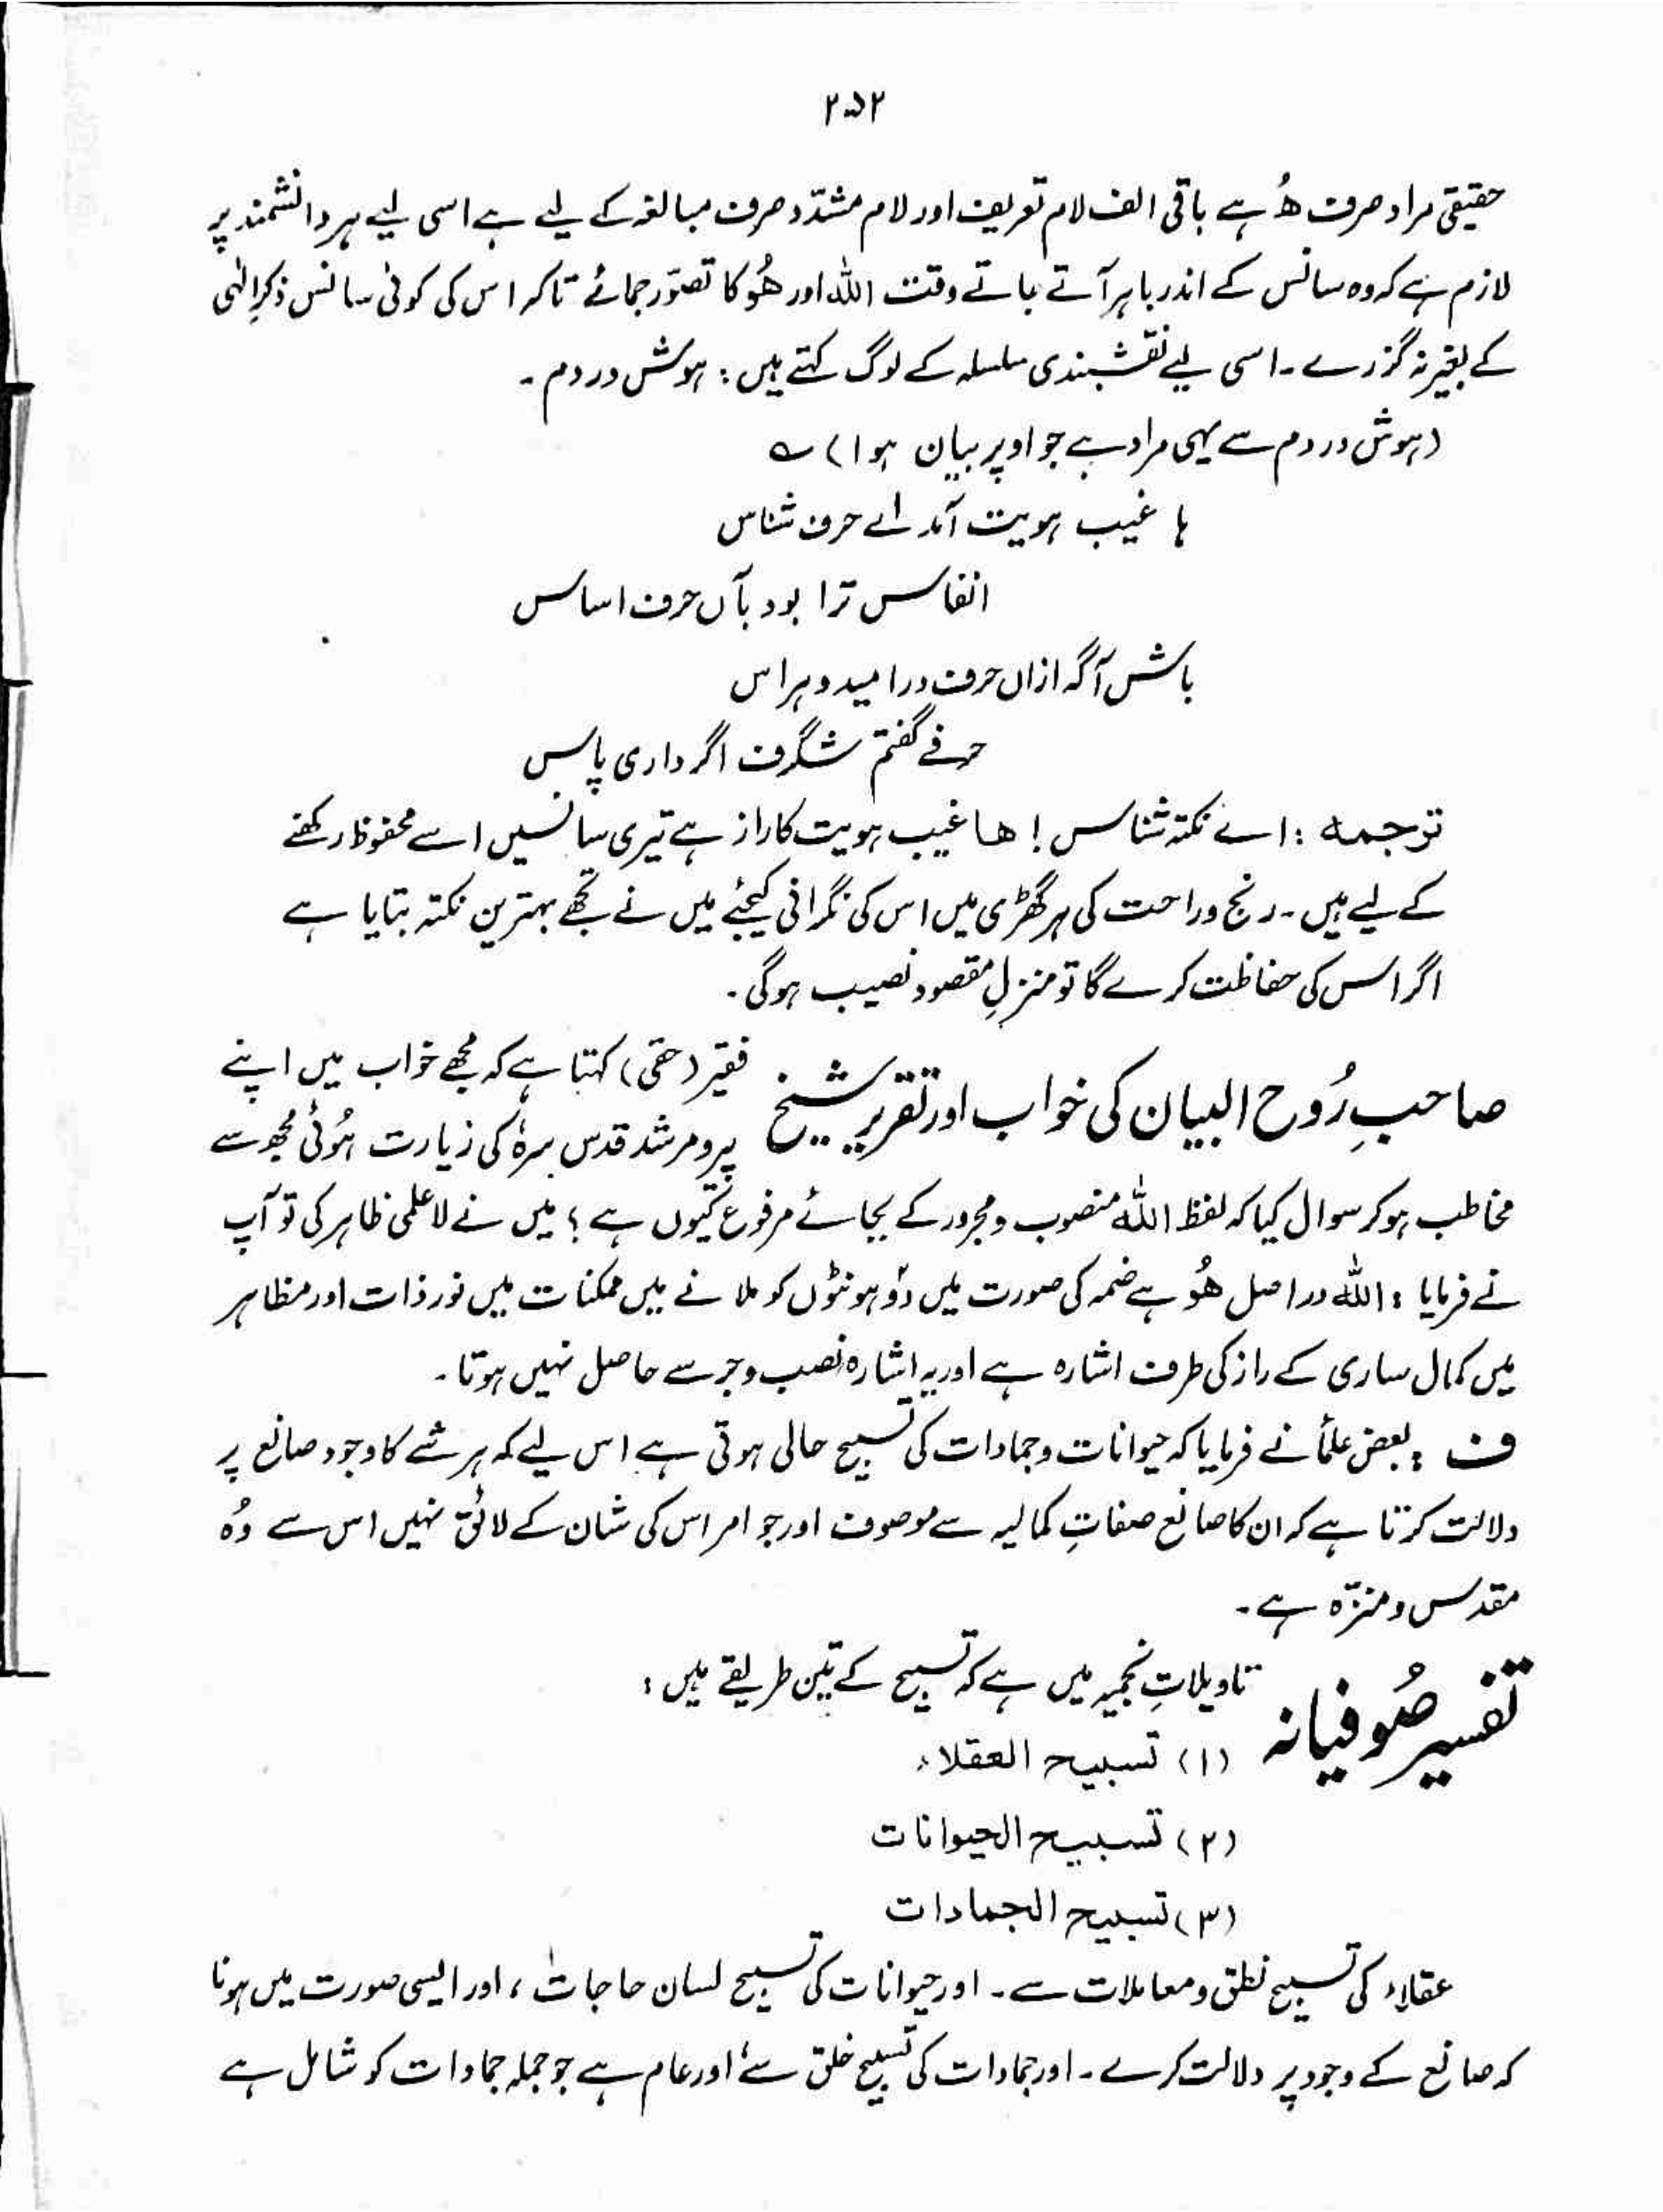 ۲۵۲
حقیقی مراد صرف ھُ ہے باقی الف لام تعریف اور لام مشدّد صرف مبالغہ کے لیے ہے اسی لیے ہر دانشمند پر
لازم ہے کہ وہ سانس کے اندر باہر آتے جاتے وقت اللہ اور ھُو کا تصوّر جمائے تاکہ اس کی کوئی سانس ذکرِ الٰہی
کے بغیر نہ گزرے ۔ اسی لیے نقشبندی سلسلہ کے لوگ کہتے ہیں : ہوش در دم ۔
(ہوش در دم سے یہی مراد ہے جو اوپر بیان ہوا) ؎
ہا غیب ہویت آمد اے حرف شناس
انفاس ترا بود بآں حرف اساس
باش آگہ ازاں حرف در امید و ہراس
حرفے گفتم شگرف اگر داری پاس
ترجمہ : اے نکتہ شناس ! ھا غیب ہویت کا راز ہے تیری سانسیں اسے محفوظ رکھنے
کے لیے ہیں ۔ رنج و راحت کی ہر گھڑی میں اس کی نگرانی کیجئے میں نے تجھے بہترین نکتہ بتایا ہے
اگر اس کی حفاظت کرے گا تو منزلِ مقصود نصیب ہوگی ۔
صاحبِ رُوح البیان کی خواب اور تقریرِ شیخ فقیر (حقی) کہتا ہے کہ مجھے خواب میں اپنے
پیر و مرشد قدس سرہٗ کی زیارت ہُوئی مجھ سے
مخاطب ہو کر سوال کیا کہ لفظ اللہُ منصوب و مجرور کے بجائے مرفوع کیوں ہے ؛ میں نے لاعلمی ظاہر کی تو آپ
نے فرمایا : اللہُ در اصل ھُو ہے ضمہ کی صورت میں دو ہونٹوں کو ملانے میں ممکنات میں نور ذات اور مظاہر
میں کمال ساری کے راز کی طرف اشارہ ہے اور یہ اشارہ نصب و جر سے حاصل نہیں ہوتا ۔
ف : بعض علمأ نے فرمایا کہ حیوانات و جمادات کی تسبیح حالی ہوتی ہے اس لیے کہ ہر شے کا وجود صانع پر
دلالت کرتا ہے کہ ان کا صانع صفاتِ کمالیہ سے موصوف اور جو امر اس کی شان کے لائق نہیں اس سے وُہ
مقدس و منزّہ ہے ۔
تفسیر صُوفیانہ تاویلاتِ نجمیہ میں ہے کہ تسبیح کے تین طریقے ہیں :
(۱) تسبیح العقلاء
(۲) تسبیح الحیوانات
(۳) تسبیح الجمادات
عقلاء کی تسبیح نطق و معاملات سے ۔ اور حیوانات کی تسبیح لسان حاجات ، اور ایسی صورت میں ہونا
کہ صانع کے وجود پر دلالت کرے ۔ اور جمادات کی تسبیح خلق سے اور عام ہے جو جملہ جمادات کو شامل ہے